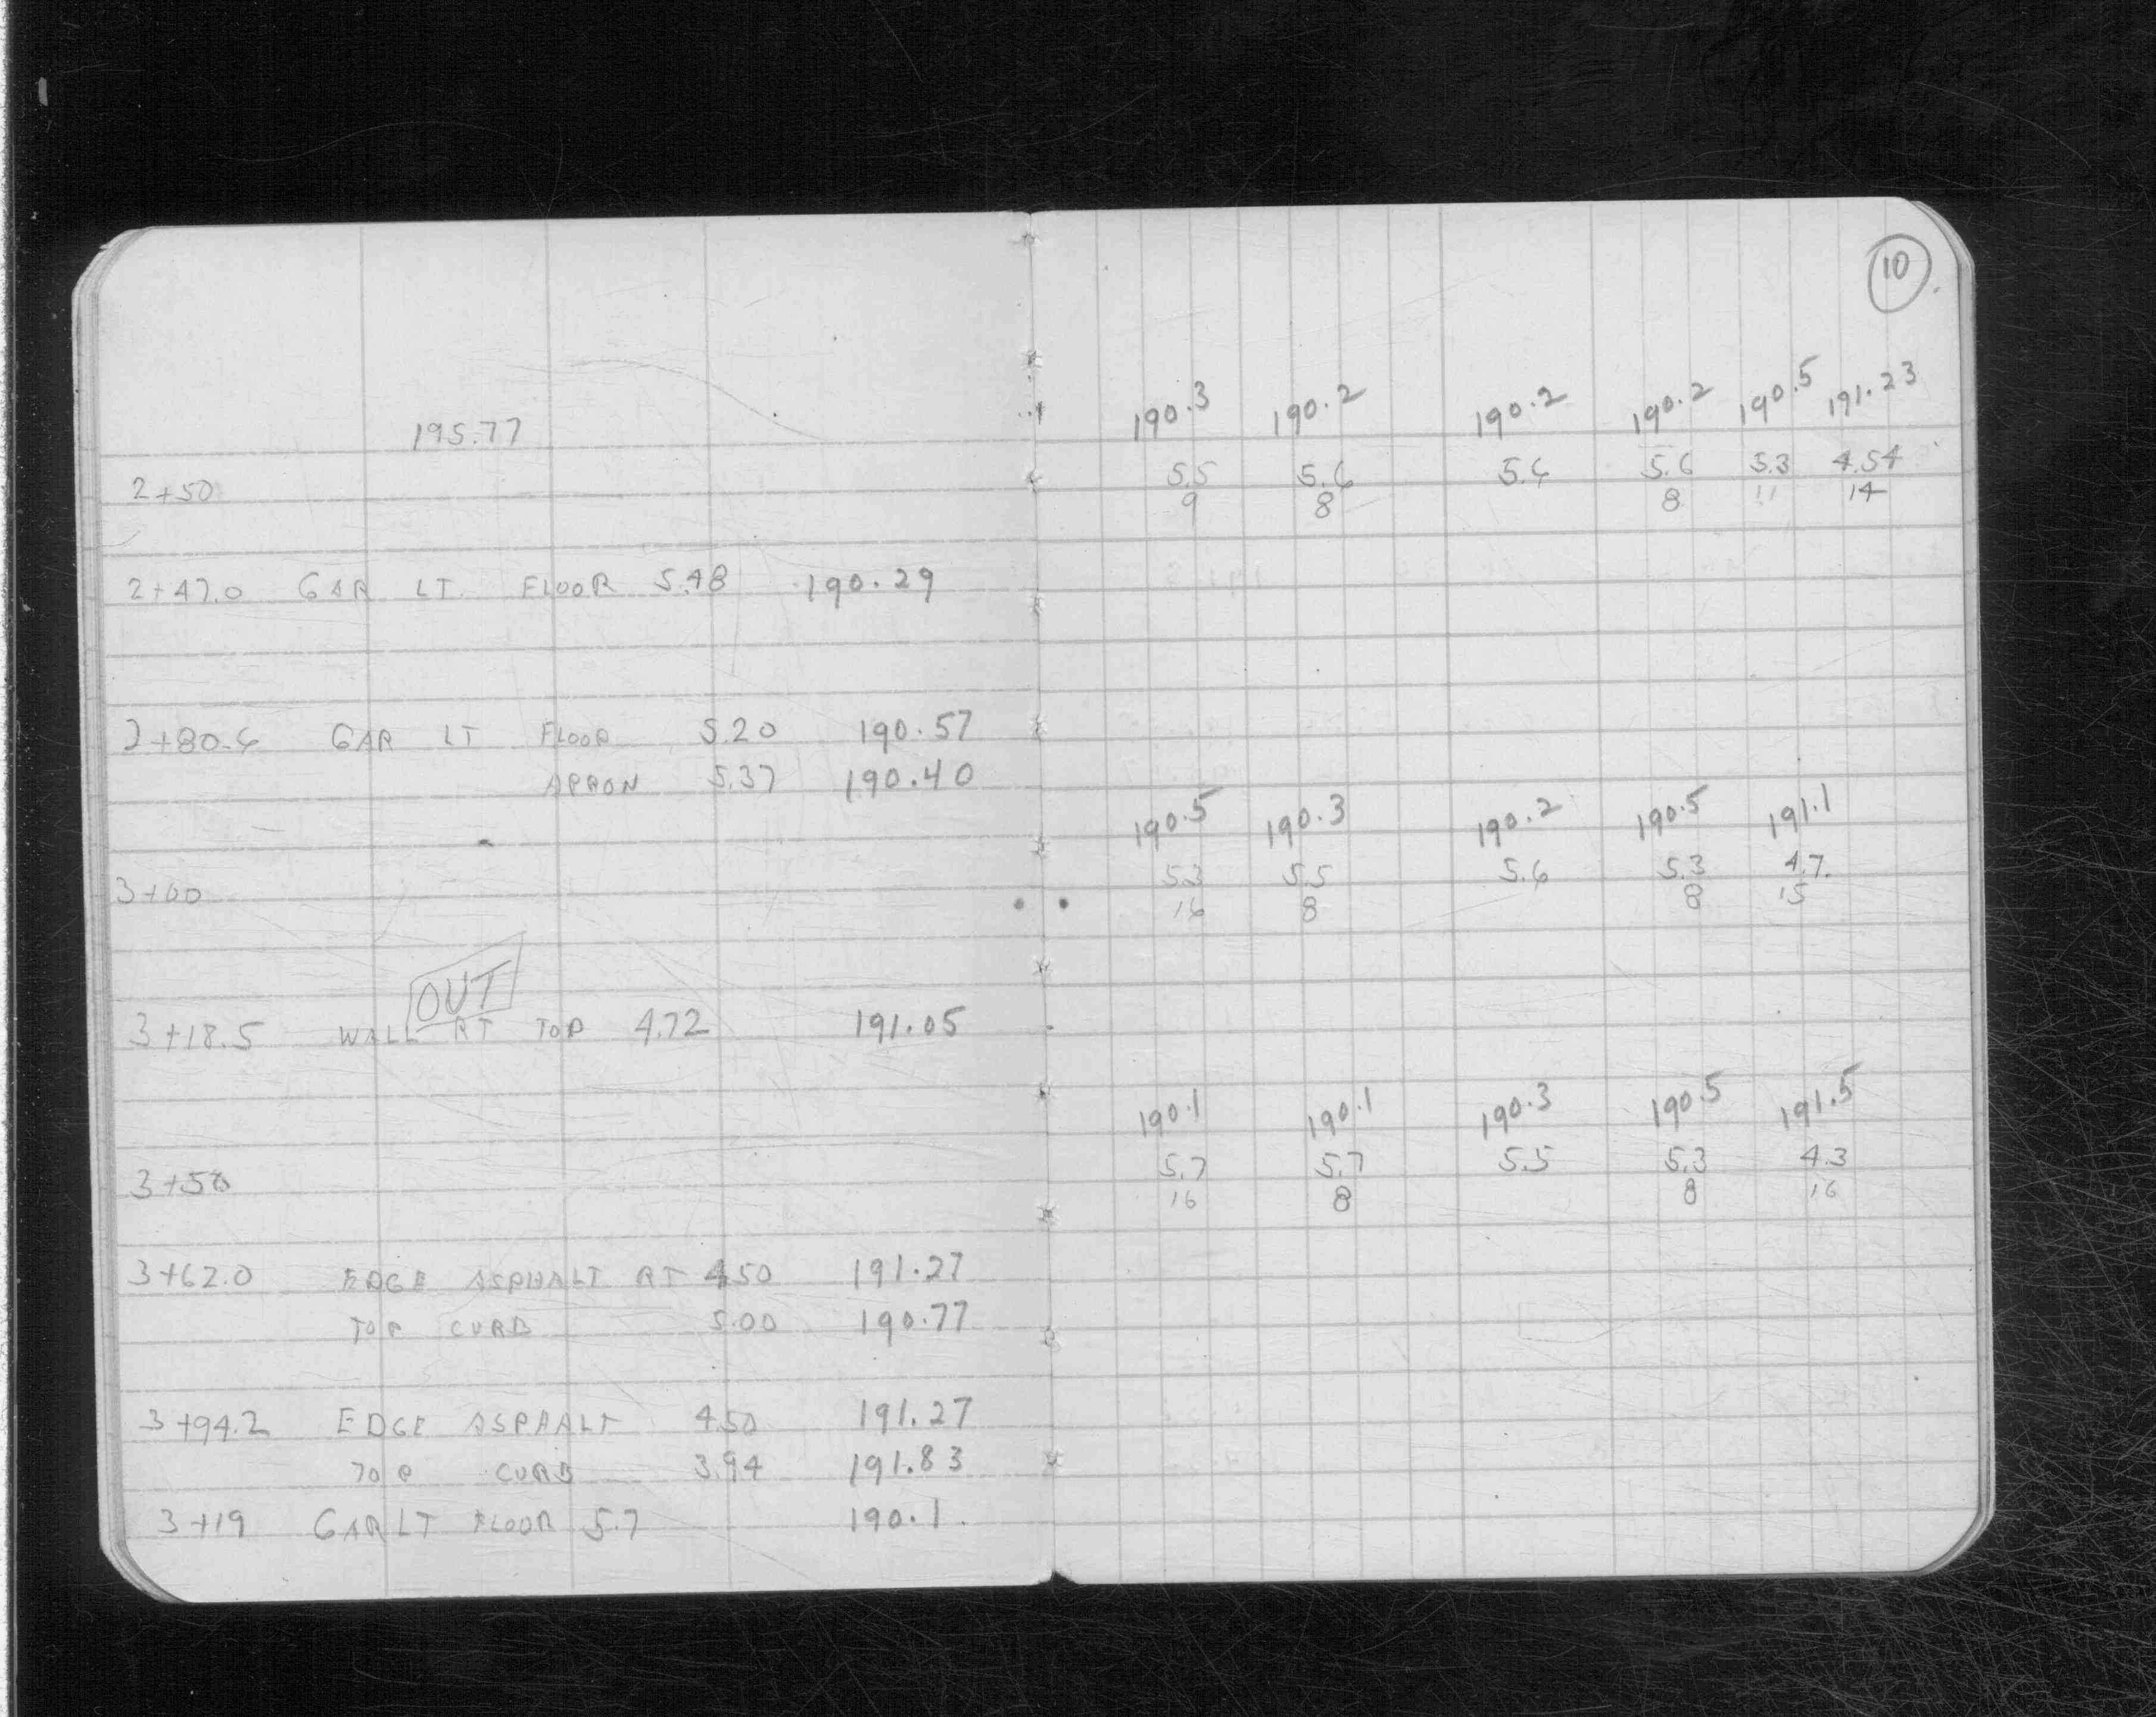 10
195.77
190.3 190.2 190.2 190.2 190.5 191.23
2+50 5.5 5.6 5.6 5.6 5.3 4.54
9 8 8 11 14
2+47.0 GAR LT. FLOOR 5.48 190.29
2+80.6 GAR LT FLOOR 5.20 190.57
APRON 5.37 190.40
190.5 190.3 190.2 190.5 191.1
3+00 5.3 5.5 5.6 5.3 4.7.
16 8 8 15
OUT
3+18.5 WALL RT TOP 4.72 191.05
190.1 190.1 190.3 190.5 191.5
3+50 5.7 5.7 5.5 5.3 4.3
16 8 8 16
3+62.0 EDGE ASPHALT RT 4.50 191.27
TOP CURB 5.00 190.77
3+94.2 EDGE ASPHALT 4.50 191.27
TOP CURB 3.94 191.83
3+19 GAR LT FLOOR 5.7 190.1.